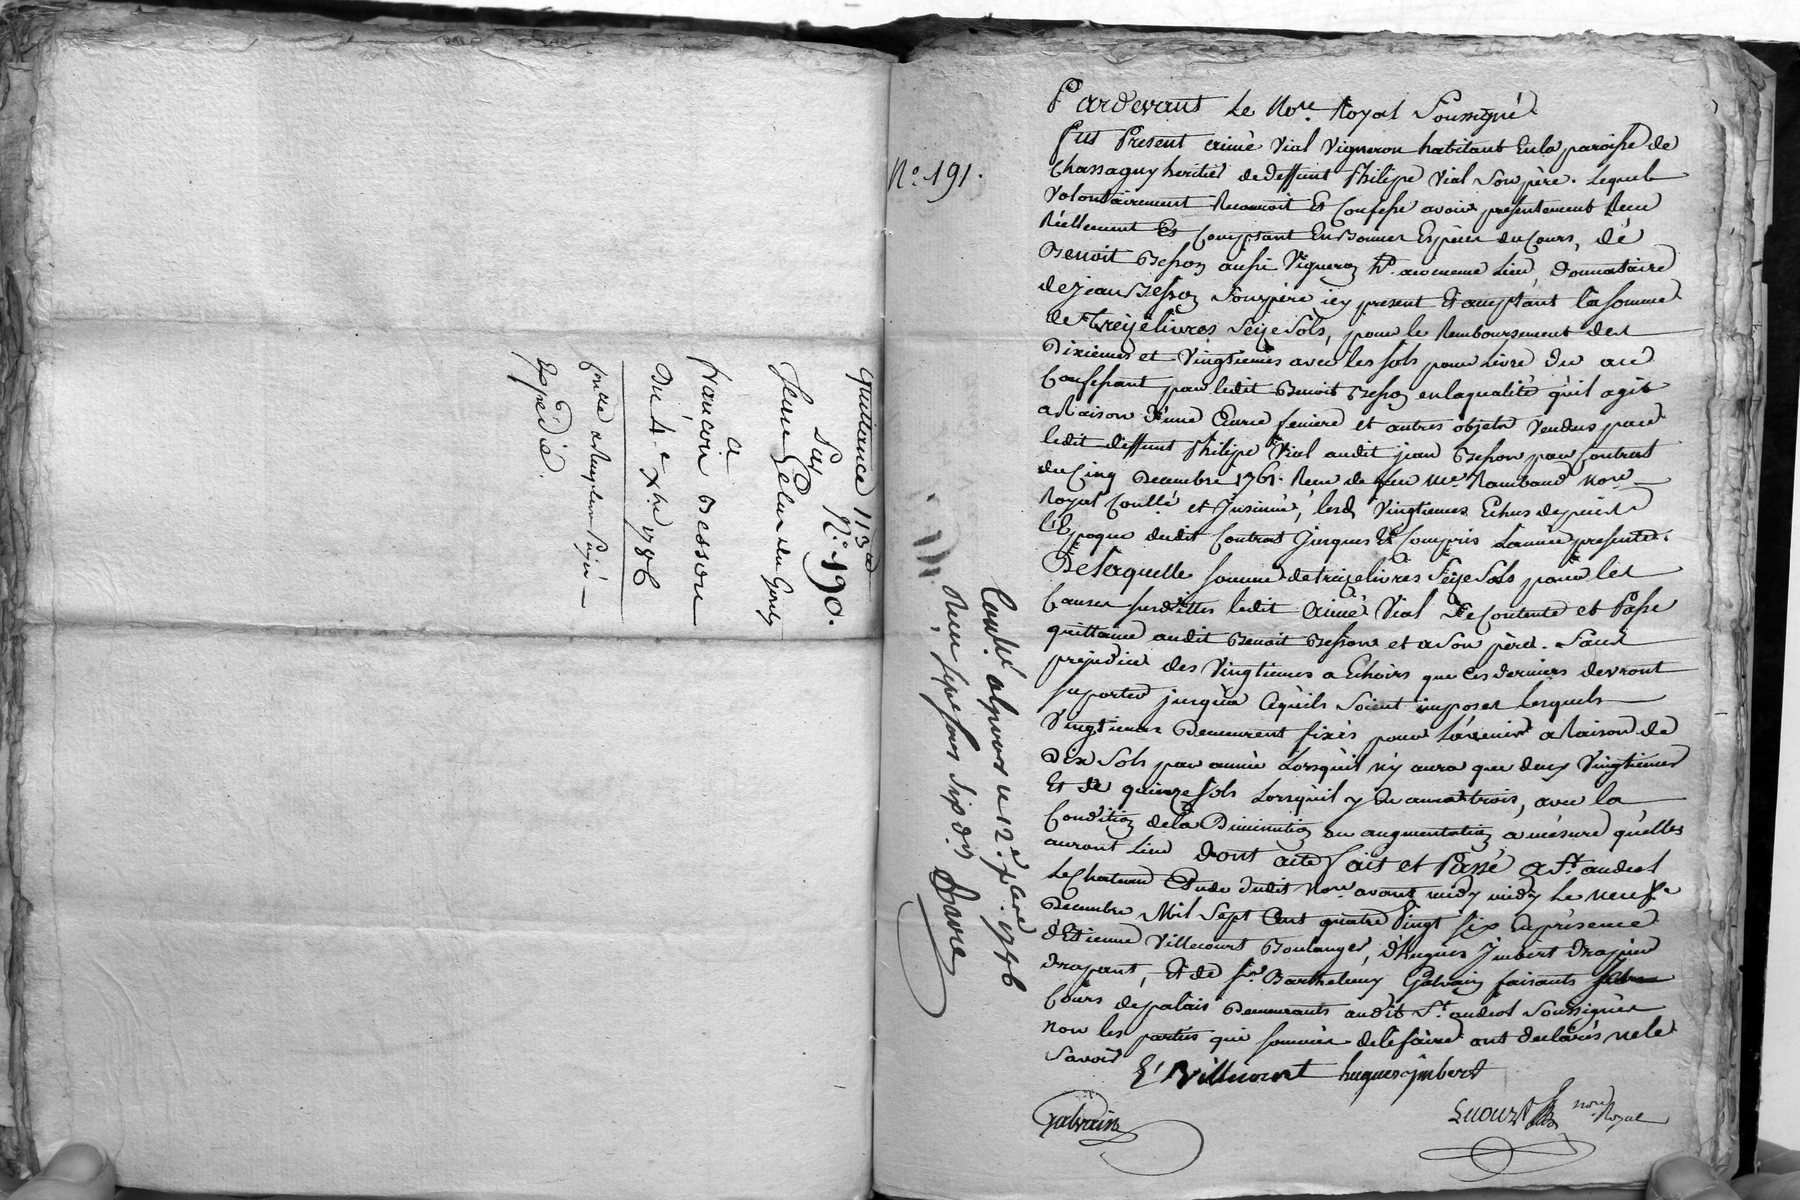 quittance 113
N.º 190.
Sur
Jean Gelas du Gorsy
a
françois Besson
Du 4.e Xbre 1786
Expédiée.
N.º 191.
Pardevant Le Nore. Royal Soussigné
Fut Present aimé Vial Vigneron habitant En la paroisse de
Chassagny heritier de deffunt Philipe Vial Son père. Lequel
Volontairement Reconnoit Et Confesse avoir presentement Reçu
Réellement Et Comptant En Bonnes Espèces du Cours, dé
Benoit Besson aussi Vigneron ht. au meme Lieu Donnataire
de jean Besson Son père icy present Et acceptant la Somme
de treize livres Seize Sols, pour le Remboursement des
Dixiemes et Vingtiemes avec les Sols pour Livre Du au
Confessant par ledit Benoit Besson en la qualité qu'il agit
a Raison d'une Curie feniere et autres objets Vendus par
ledit deffunt Philipe Vial audit jean Besson par Contrat
du Cinq Decembre 1761. Reçu de feu me. Rambaud Nore
Royal Conllé et Insinué, lesd. Vingtiemes Echus depuis
l'Epoque dudit Contrat Jusques Et Compris L'année presente.
De laquelle Somme de treize livres Seize Sols pour les
Causes Susdittes ledit aimé Vial Se Contente et Passe
quittance audit Benoit Besson et a Son père. Sans
prejudice des Vingtiemes a Echoirs que Ces derniers devront
Suporter jusqu'a Cequ'ils Soient imposes lesquels
Vingtiemes Demeurent fixés pour L'avenir a Raison de
Dix Sols par année Lorsqu'il n'y aura que deux Vingtiemes
Et de quinze Sols Lorsqu'il y En aura trois, avec la
Condition de la Diminution ou augmentation a mésure qu'elles
auront Lieu Dont acte Fait et Passé a St. andeol
Le Chateau Etude dudit Nore avant midy midy Le neuf
Decembre Mil Sept Cent quatre Vingt Six En présence
d'Etienne Villecourt Boulanger, d'hugues Jmbert Drapier
Drapant, Et de Sr. Barthelemy Galvain faisants
Cours de palais Demeurants audit St. andeol Soussignés
Non les parties qui Sommées de le faire ont declarés ne le
Savoir
E. Villecourt hugues jmbert
Galvain
nore Royal
Conllé a Givors le 12.e Xbre. 1786
Reçu Sept Sols Six drs. Favre